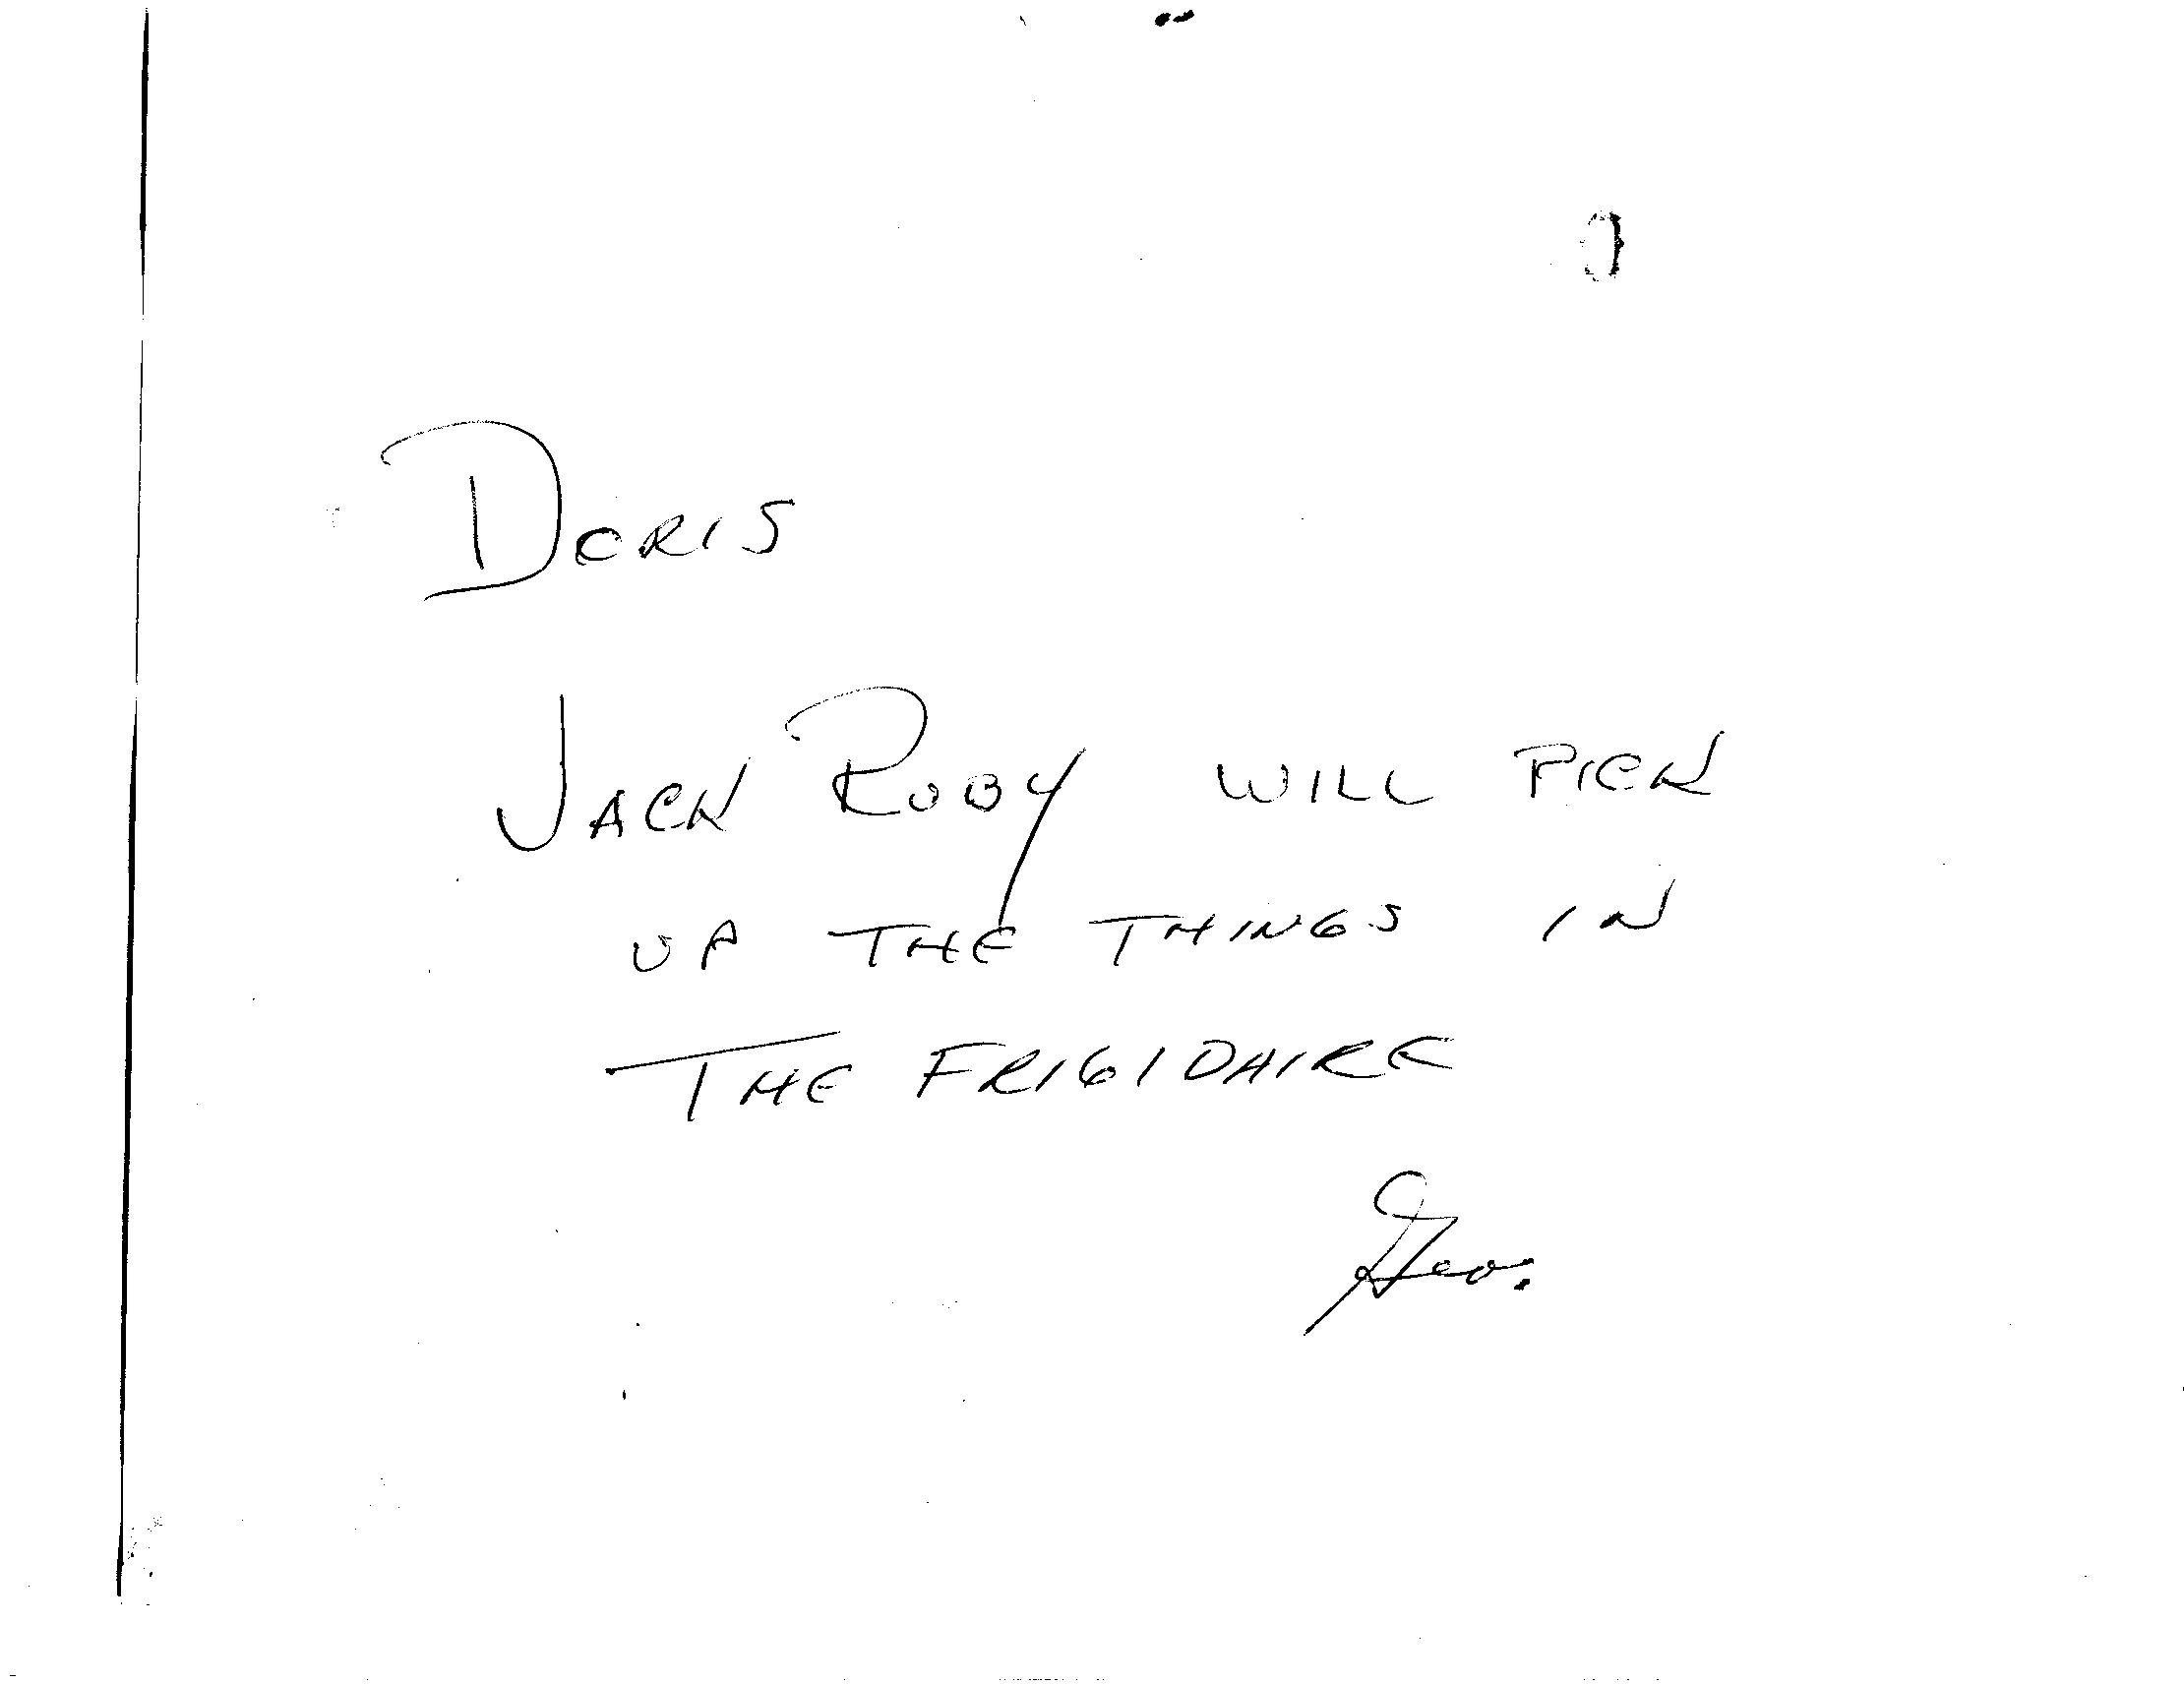 DORIS
JACK RUBY WILL PICK
UP THE THINGS IN
THE FRIGIDAIRE
Geo.